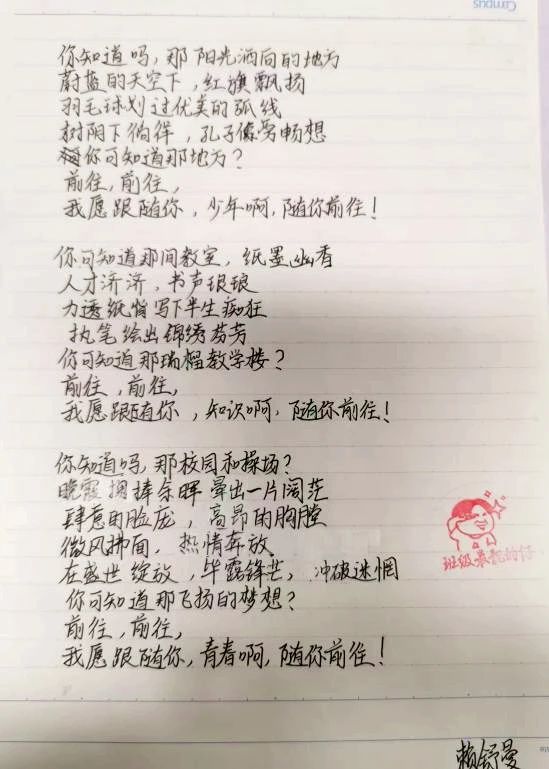 Campus
你知道吗，那阳光洒向的地方
蔚蓝的天空下，红旗飘扬
羽毛球划过优美的弧线
树阴下徜徉，孔子像旁畅想
你可知道那地方？
前往，前往，
我愿跟随你，少年啊，随你前往！
你可知道那间教室，纸墨幽香
人才济济，书声琅琅
力透纸背写下半生痴狂
执笔绘出锦绣芬芳
你可知道那瑞榴教学楼？
前往，前往，
我愿跟随你，知识啊，随你前往！
你知道吗，那校园和操场？
晚霞拥捧余晖晕出一片阔茫
肆意的脸庞，高昂的胸膛
微风拂面，热情奔放
在盛世绽放，毕露锋芒，冲破迷惘
你可知道那飞扬的梦想？
前往，前往，
我愿跟随你，青春啊，随你前往！
班级最靓的仔
赖舒曼